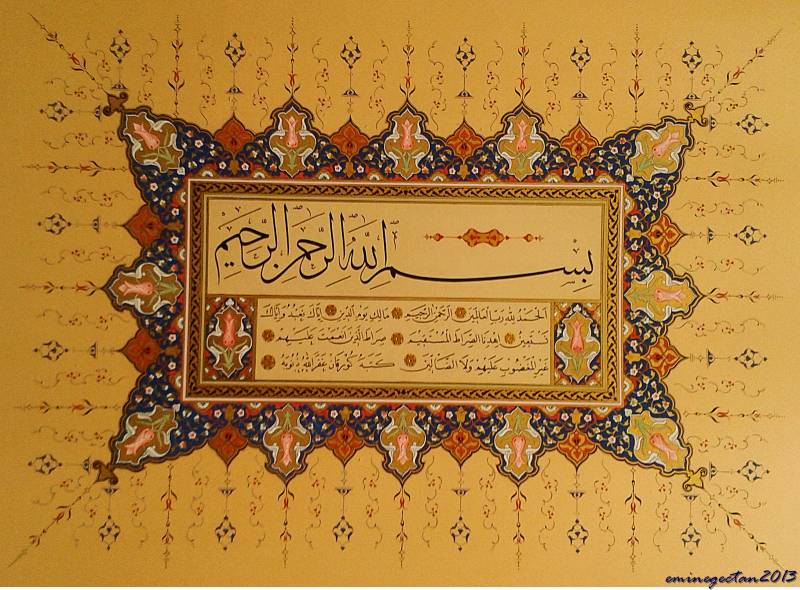 بِسْمِ اللهِ الرَّحْمنِ الرَّحِيمِ
اَلْحَمْدُ لِلّٰهِ رَبِّ الْعَالَمِينَ اَلرَّحْمنِ الرَّحِيمِ مَالِكِ يَوْمِ الدِّينِ اِيَّاكَ نَعْبُدُ وَاِيَّاكَ
نَسْتَعِينُ اِهْدِنَا الصِّرَاطَ الْمُسْتَقِيمَ صِرَاطَ الَّذِينَ اَنْعَمْتَ عَلَيْهِمْ
غَيْرِ الْمَغْضُوبِ عَلَيْهِمْ وَلَا الضَّالِّينَ كَتَبَهُ غَفَرَ اللهُ ذُنُوبَهُ
eminegectan2013